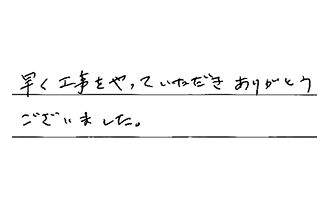 早く工事をやっていただきありがとう
ございました。